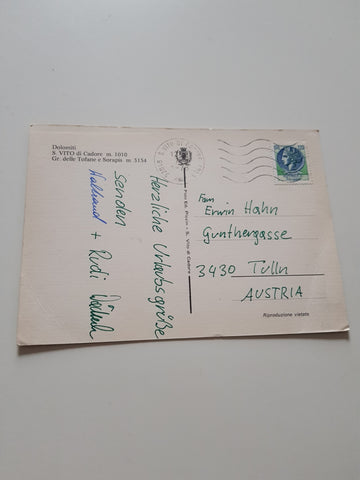 Dolomiti
S. VITO di Cadore m. 1010
Gr. delle Tofane e Sorapis m. 3134
Herzliche Urlaubsgrüße
senden
+ Rudi
Foto Ed. S. Vito di Cadore
Fam
Erwin Hahn
Gunthergasse
3430 Tulln
AUSTRIA
Riproduzione vietata